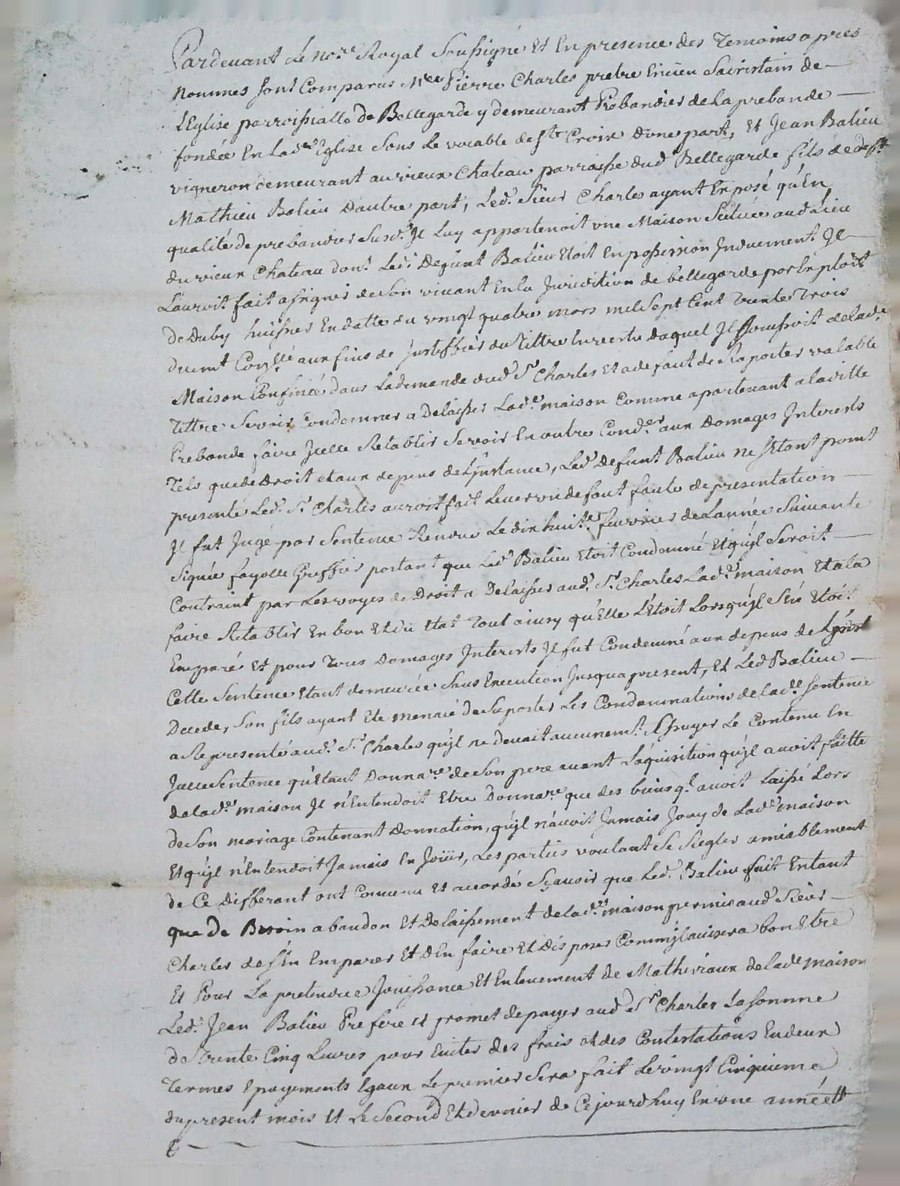 Pardevant le no.re Royal Soussigné et En presence des Temoins apres
Nommés sont Comparus M.re Pierre Charles prebtre Encien Sacristain de
l'Eglise parroissialle de Bellegarde y demeurant Prebandier de la prebande
fondée En lad.e Eglise Sous le vocable de S.te Croix d'une part, Et Jean Balieu
vigneron demeurant au vieux Chateau parroisse dud. Bellegarde fils de def.t
Mathieu Balieu dautre part, Led. Sieur Charles ayant Exposé qu'En
qualité de prebandier Susd. Il luy appartenoit une Maison Scituée aud. Lieu
du vieux Chateau dont Led. Defunt Balieu Etoit En possession Induement Il
Lauroit fait assigner de son vivant En la Juridiction de bellegarde par Exploit
de Huissier En datte du vingt quatre mars mil Sept Cent Trente Trois
duemt Con.llé aux fins de Justiffier du Tittre En vertu duquel Il Jouissoit de lad.e
Maison Confinée dans La demande dud. S.r Charles Et a defaut de Raporter valable
Tittre Seroit Condamner a Delaisser Lad.e maison Comme apartenant a la ditte
Prebande faire Icelle Retablir Seroit En outre Cond.er aux Domages Interests
Tels que de Droit et aux depens de L'instance, Led. Defunt Balieu ne Setant point
presenté Led. S.r Charles auroit fait Lever un defaut faute de presentation
Il fut Jugé par Sentence Rendue Le dix huit.e fevrier de Lannée Suivante
Signée fayolle Greffier portant que Led. Balieu Etoit Condamné Et qu'il Seroit
Contraint par Les voyes de Droit a Delaisser aud. S.r Charles Lad.e maison Et a la
faire Retablir En bon Et du Etat Tout ainsy qu'Elle L'Etoit Lorsqu'il S'En Etoit
Emparé Et pour Tous Domages Interests Il fut Condemné aux depens de
Cette Sentence Etant demeurée Sans Execution Jusqua present, Et Led Balieu
Decedé, Son fils ayant Eté menacé de Suporter Les Condamnations de lad.e Sentence
a Representé aud. S.r Charles qu'il ne Devait aucunement Essuyer Le Contenu En
Icelle Sentence qu'Etant Donna.re de Son pere avant L'aquisition qu'il avoit faitte
de lad.e maison Il n'Entendoit Etre Donna.re que des biens q'l avoit Laissé Lors
de Son mariage Contenant Donnation, qu'il n'avoit Jamais Jouy de Lad.e maison
Et qu'il n'Entendoit Jamais En Joüir, Les parties voulant Se Regler amiablement
de Ce Differant ont Convenu Et accordés Scavoir que Led. Balieu fait Entant
que de Besoin abandon Et Delaissement de lad.e maison permis aud. Sieur
Charles de S'En Emparer Et d'En faire Et Disposer Comm'il avisera bon Etre
Et Pour La pretendue Jouissance Et Enlevement de Matheriaux de lad.e maison
Led. Jean Balieu Prefere Et promet de payer aud. S.r Charles La Somme
de Trente Cinq Livres pour Eviter des frais et des Contestations En deux
Termes Epayements Egaux Le premier Sera fait Le vingt Cinquieme
du present mois Et Le Second Et dernier de Cejourdhuy En une année